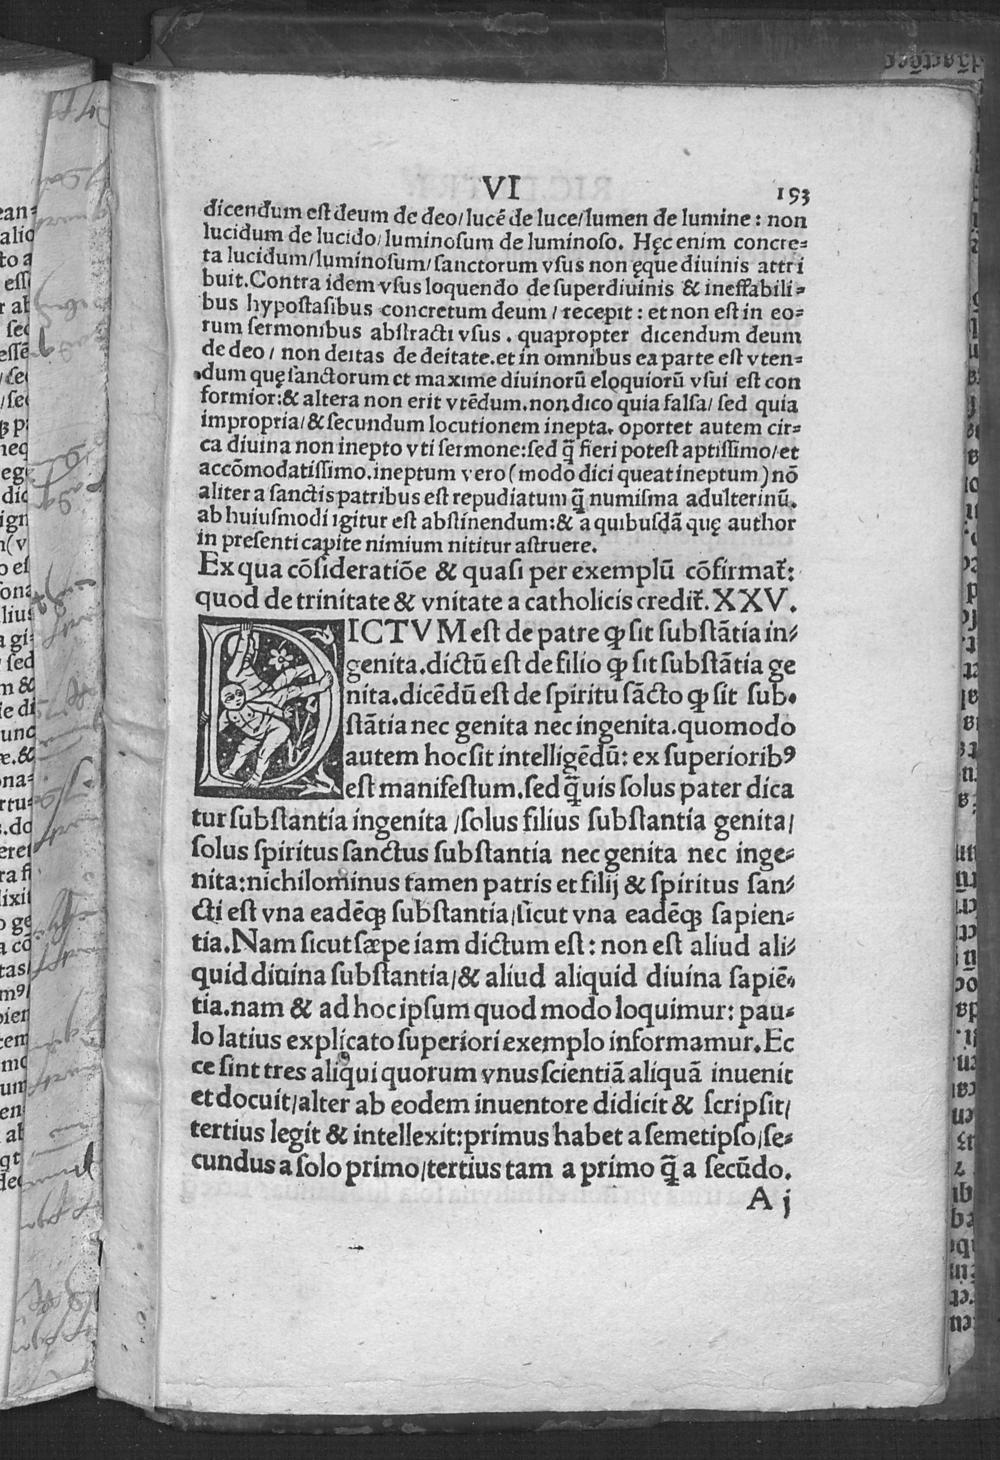 VI 193
dicendum est deum de deo/lucẽ de luce/lumen de lumine: non
lucidum de lucido/luminosum de luminoso. Hęc enim concre=
ta lucidum/luminosum/sanctorum vsus non ęque diuinis attri
buit.Contra idem vsus loquendo de superdiuinis & ineffabili=
bus hypostasibus concretum deum/recepit: et non est in eo=
rum sermonibus abstracti vsus. quapropter dicendum deum
de deo/non deitas de deitate.et in omnibus ea parte est vten=
dum quę sanctorum et maxime diuinorũ eloquiorũ vsui est con
formior:& altera non erit vtẽdum.non dico quia falsa/sed quia
impropria/& secundum locutionem inepta. oportet autem cir=
ca diuina non inepto vti sermone:sed q̃ fieri potest aptissimo/et
accõmodatissimo.ineptum vero(modo dici queat ineptum)nõ
aliter a sanctis patribus est repudiatum q̃ numisma adulterinũ.
ab huiusmodi igitur est abstinendum:& a quibusdã quę author
in presenti capite nimium nititur astruere.
Ex qua cõsideratiõe & quasi per exemplũ cõfirmat̃:
quod de trinitate & vnitate a catholicis credit̃.XXV.
DICTVM est de patre ꝙ sit substãtia in=
genita.dictũ est de filio ꝙ sit substãtia ge
nita.dicẽdũ est de spiritu sãcto ꝙ sit sub=
stãtia nec genita nec ingenita.quomodo
autem hoc sit intelligẽdũ: ex superioribꝰ
est manifestum.sed q̃uis solus pater dica
tur substantia ingenita/solus filius substantia genita/
solus spiritus sanctus substantia nec genita nec inge=
nita:nichilominus tamen patris et filij & spiritus san=
cti est vna eadẽqꝫ substantia/sicut vna eadẽqꝫ sapien=
tia.Nam sicut sæpe iam dictum est: non est aliud ali=
quid diuina substantia/& aliud aliquid diuina sapiẽ=
tia.nam & ad hoc ipsum quod modo loquimur: pau=
lo latius explicato superiori exemplo informamur.Ec
ce sint tres aliqui quorum vnus scientiã aliquã inuenit
et docuit/alter ab eodem inuentore didicit & scripsit/
tertius legit & intellexit:primus habet a semetipso/se=
cundus a solo primo/tertius tam a primo q̃ a secũdo.
A j